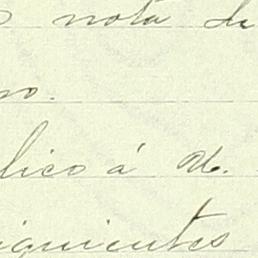 nota de
no.
lico á U.
iguientes